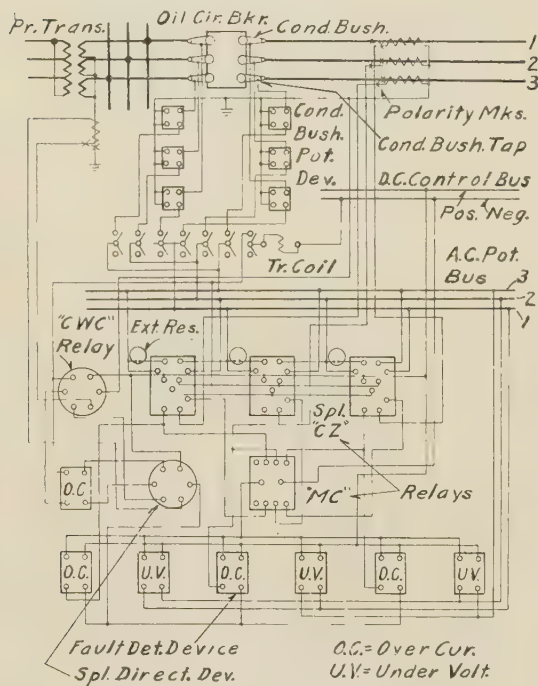 Pr. Trans.
Oil Cir. Bkr.
Cond. Bush.
1
2
3
Polarity Mks.
Cond. Bush. Tap
Cond.
Bush.
Pot.
Dev.
D.C. Control Bus
Pos. Neg.
Tr. Coil
A.C. Pot.
Bus
3
2
1
"CWC"
Relay
Ext. Res.
Spl.
"CZ"
"MC"
Relays
O.C.
O.C.
U.V.
O.C.
U.V.
O.C.
U.V.
Fault Det. Device
Spl. Direct. Dev.
O.C. = Over Cur.
U.V. = Under Volt.